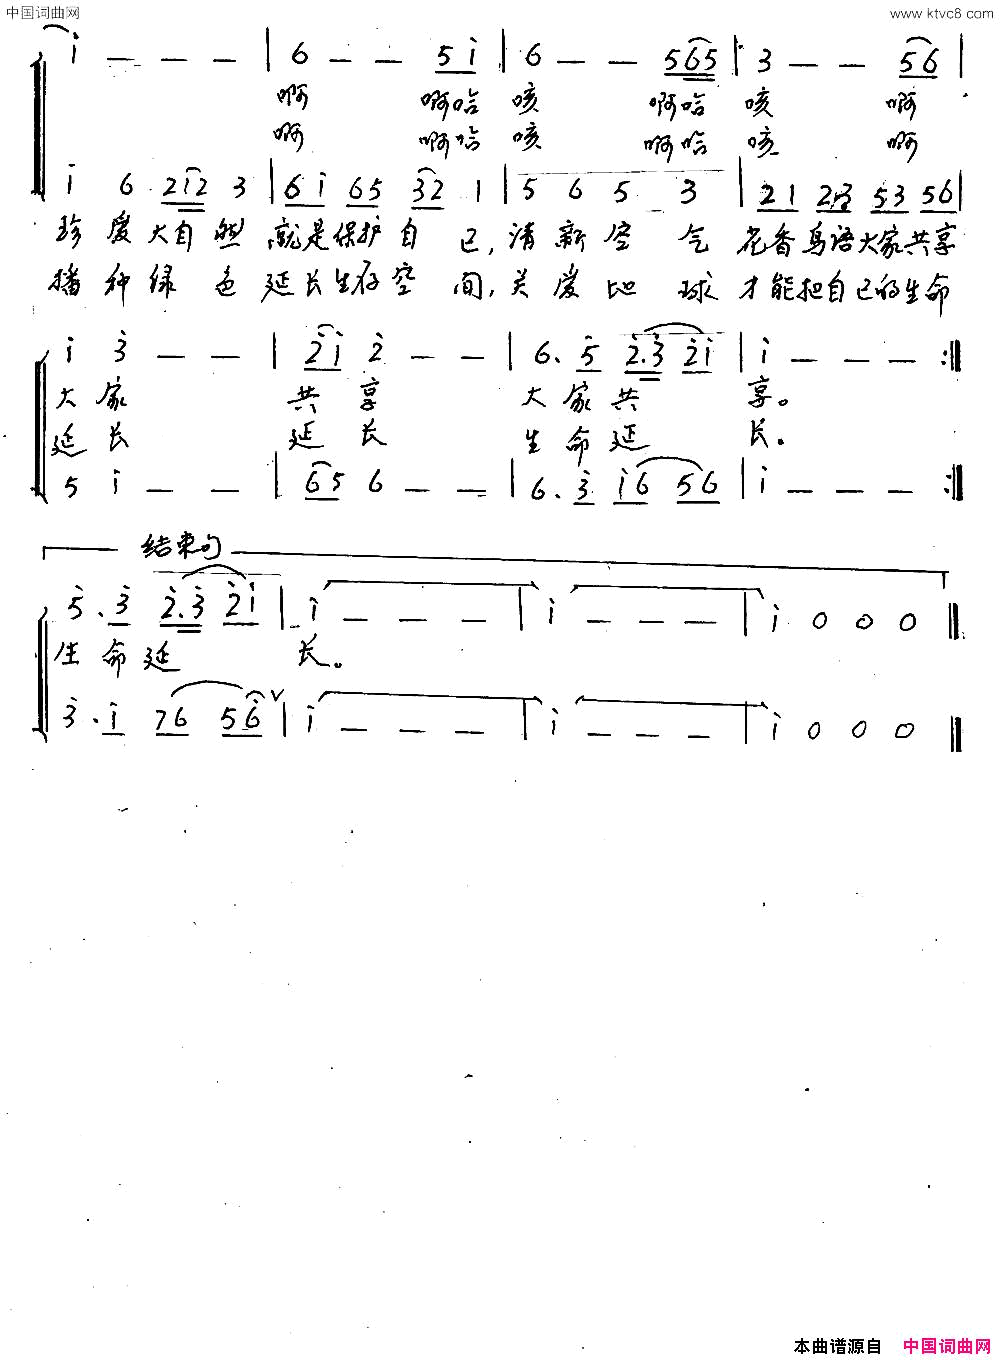 中国词曲网 www.ktvc8.com
i - - - | 6 - - 5 i | 6 - - 5 6 5 | 3 - - 5 6 |
啊 啊哈 咳 啊哈 咳 啊
啊 啊哈 咳 啊哈 咳 啊
i 6 2 i 2 3 | 6 i 6 5 3 2 1 | 5 6 5 3 | 2 1 2 3 5 3 5 6 |
珍爱大自然 就是保护自己，清新空气 花香鸟语大家共享
播种绿色 延长生存空间，关爱地球 才能把自己的生命
i 3 - - | 2 i 2 - - | 6. 5 2. 3 2 i | i - - - :||
大家 共享 大家共 享。
延长 延长 生命延 长。
5 i - - | 6 5 6 - - | 6. 3 i 6 5 6 | i - - - :||
结束句
5. 3 2. 3 2 i | i - - - | i - - - | i 0 0 0 ||
生命延 长。
3. i 7 6 5 6 ∨ | i - - - | i - - - | i 0 0 0 ||
本曲谱源自 中国词曲网